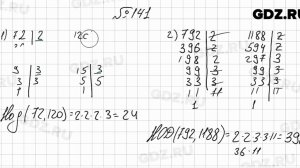 GDZ.RU
№ 141
1) 72 | 2 120
9 | 3 15 | 3
3 | 3 5 | 5
1
НОД (72,120) = 2·2·2·3 = 24
2) 792 | 2 1188 | 2
396 | 2 594 | 2
198 | 2 297 | 3
99 | 3 99 | 3
33 | 3 33 | 3
11 | 11 11 | 11
1 1
НОД (792,1188) = 2·2·3·3·11 = 39
36·11
GDZ.RU